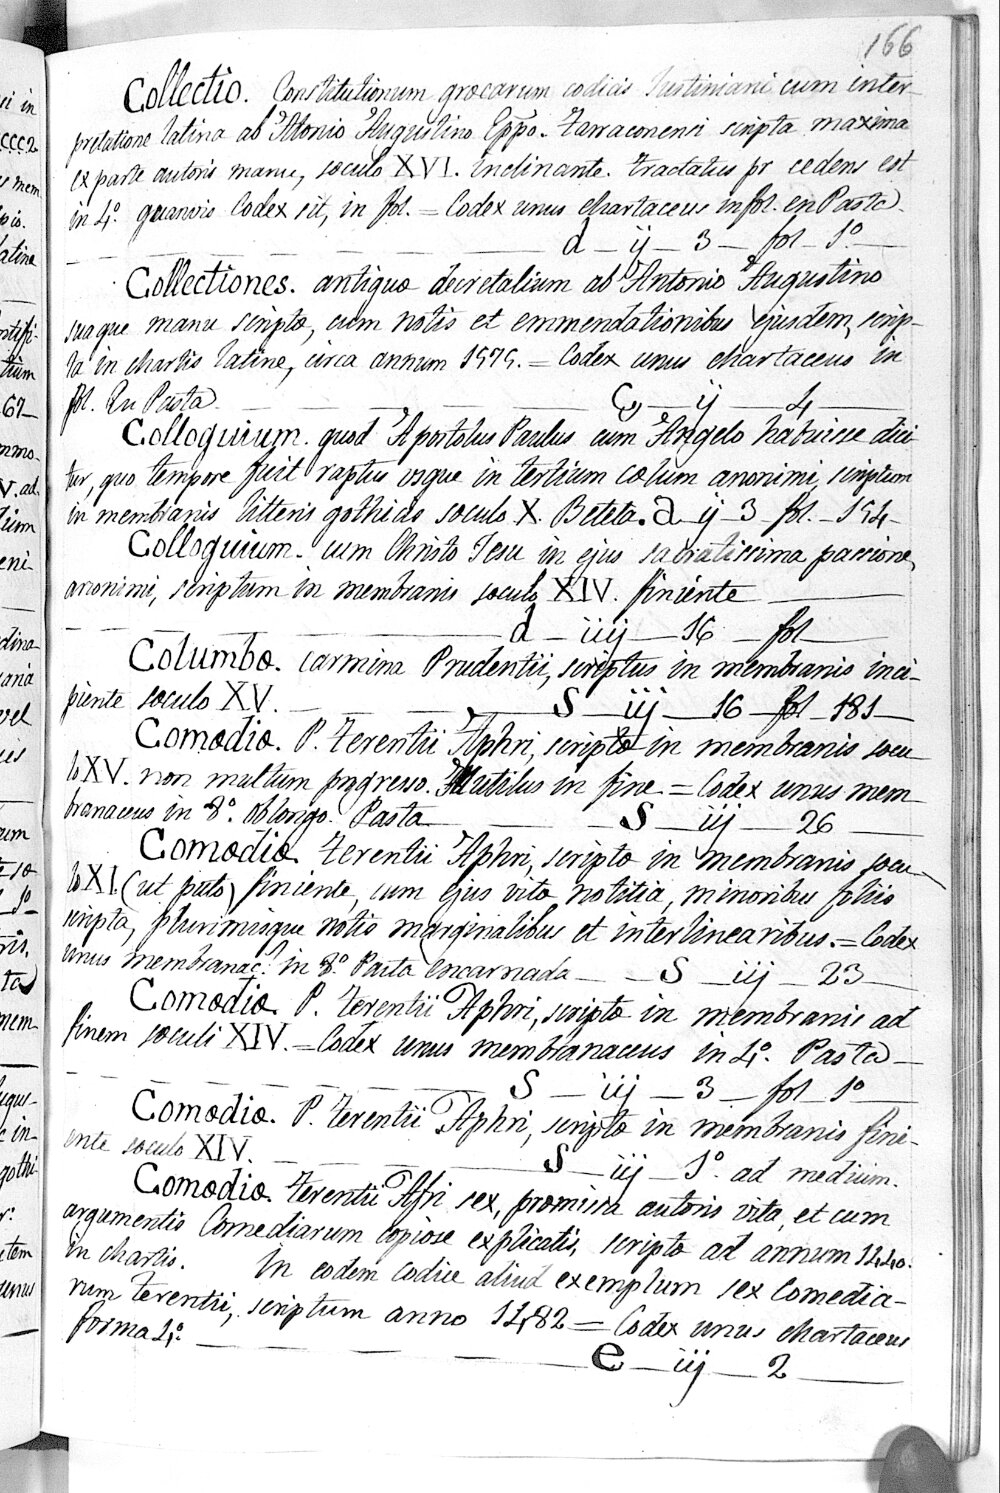 166
Collectio. Constitutionum græcarum codicis Iustiniani cum inter-
pretatione latina ab Antonio Augustino Eppo. Tarraconensi scripta maxima
ex parte autoris manu, sœculo XVI. inclinante. tractatus pr cedens est
in 4.º quamvis Codex sit, in fol. = Codex unus chartaceus in fol. en Pasta.
d - ij - 3 - fol - 1º
Collectiones. antiquæ decretalium ab Antonio Augustino
suaque manu scriptæ, cum notis et emmendationibus ejusdem, scrip-
ta in chartis latine, circa annum 1575. = Codex unus chartaceus in
fol. En Pasta. ij 4
Colloquium. quod Apostolus Paulus cum Angelo habuisse dici-
tur, quo tempore fuit raptus usque in tertium cœlum anonimi, scriptum
in membranis litteris gothicis sœculo X. Beteta. a - ij - 3 - fol. - 154
Colloquium. cum Christo Iesu in ejus sacratissima passione,
anonimi, scriptum in membranis sœculo XIV. finiente
d - iij - 16 - fol
Columbæ. carmina Prudentii, scriptus in membranis inci-
piente sœculo XV. S - iij - 16 - fol - 181
Comœdiæ. P. Terentii Aphri, scriptæ in membranis sœcu-
lo XV. non multum progresso. Mutilus in fine. = Codex unus mem-
branaceus in 8º. oblongo. Pasta S - iij - 26
Comœdiæ. Terentii Aphri, scriptæ in membranis sœcu-
lo XI. (ut puto) finiente, cum ejus vitæ notitia, minoribus foliis
scripta, plurimisque notis marginalibus et interlinearibus. = Codex
unus membranac.s in 8.º Pasta encarnada - S - iij - 23
Comœdiæ. P. Terentii Aphri, scriptæ in membranis ad
finem sœculi XIV. = Codex unus membranaceus in 4.º Pasta
S - iij - 3 - fol 1º
Comœdiæ. P. Terentii Aphri, scriptæ in membranis fini-
ente sœculo XIV. S - iij - 1º. ad medium.
Comœdiæ. Terentii Afri sex, præmissa autoris vita, et cum
argumentis Comediarum copiose explicatis, scriptæ ad annum 1440.
in chartis. In eodem codice aliud exemplum sex Comedia-
rum Terentii, scriptum anno 1482 = Codex unus chartaceus
forma 4.º
e - iij - 2